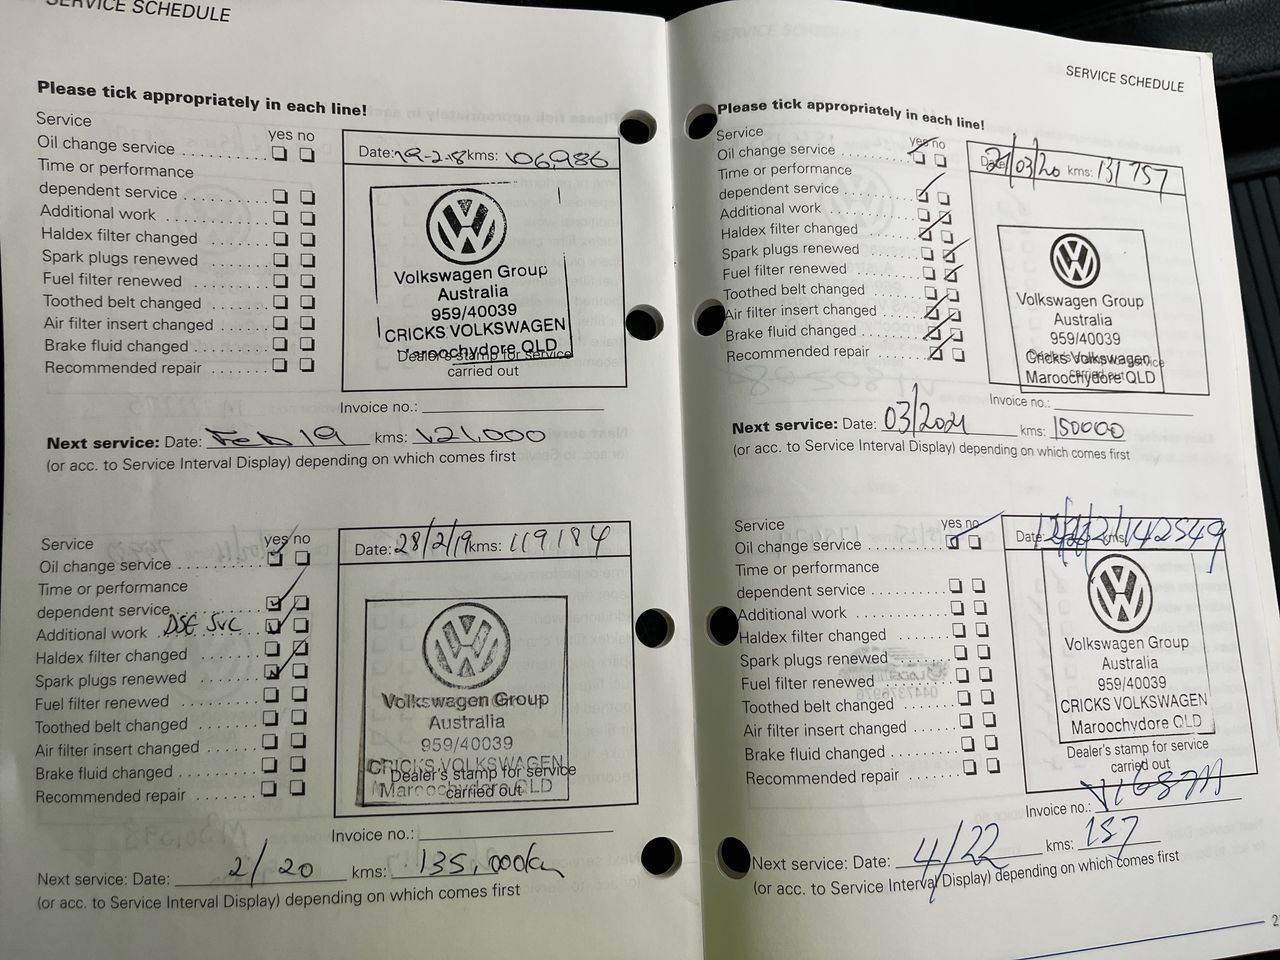 SERVICE SCHEDULE
Please tick appropriately in each line!
Service yes no
Oil change service
Time or performance
dependent service
Additional work
Haldex filter changed
Spark plugs renewed
Fuel filter renewed
Toothed belt changed
Air filter insert changed
Brake fluid changed
Recommended repair
Date: 19-2-18 kms: 106,986
Volkswagen Group
Australia
959/40039
CRICKS VOLKSWAGEN
Maroochydore QLD
Dealer's stamp for service
carried out
Invoice no.:
Next service: Date: Feb 19 kms: 121,000
(or acc. to Service Interval Display) depending on which comes first
Service yes no
Oil change service
Time or performance
dependent service
Additional work DSG SVC
Haldex filter changed
Spark plugs renewed
Fuel filter renewed
Toothed belt changed
Air filter insert changed
Brake fluid changed
Recommended repair
Date: 28/2/19 kms: 119184
Volkswagen Group
Australia
959/40039
CRICKS VOLKSWAGEN
Maroochydore QLD
Dealer's stamp for service
carried out
Invoice no.:
Next service: Date: 2/20 kms: 135,000km
(or acc. to Service Interval Display) depending on which comes first
SERVICE SCHEDULE
Please tick appropriately in each line!
Service yes no
Oil change service
Time or performance
dependent service
Additional work
Haldex filter changed
Spark plugs renewed
Fuel filter renewed
Toothed belt changed
Air filter insert changed
Brake fluid changed
Recommended repair
Date: /03/20 kms: 131757
Volkswagen Group
Australia
959/40039
Cricks Volkswagen
Maroochydore QLD
carried out
Invoice no.:
Next service: Date: 03/2021 kms: 150000
(or acc. to Service Interval Display) depending on which comes first
Service yes no
Oil change service
Time or performance
dependent service
Additional work
Haldex filter changed
Spark plugs renewed
Fuel filter renewed
Toothed belt changed
Air filter insert changed
Brake fluid changed
Recommended repair
Date: kms: 142549
Volkswagen Group
Australia
959/40039
CRICKS VOLKSWAGEN
Maroochydore QLD
Dealer's stamp for service
carried out
Invoice no.:
Next service: Date: 4/22 kms: 157
(or acc. to Service Interval Display) depending on which comes first